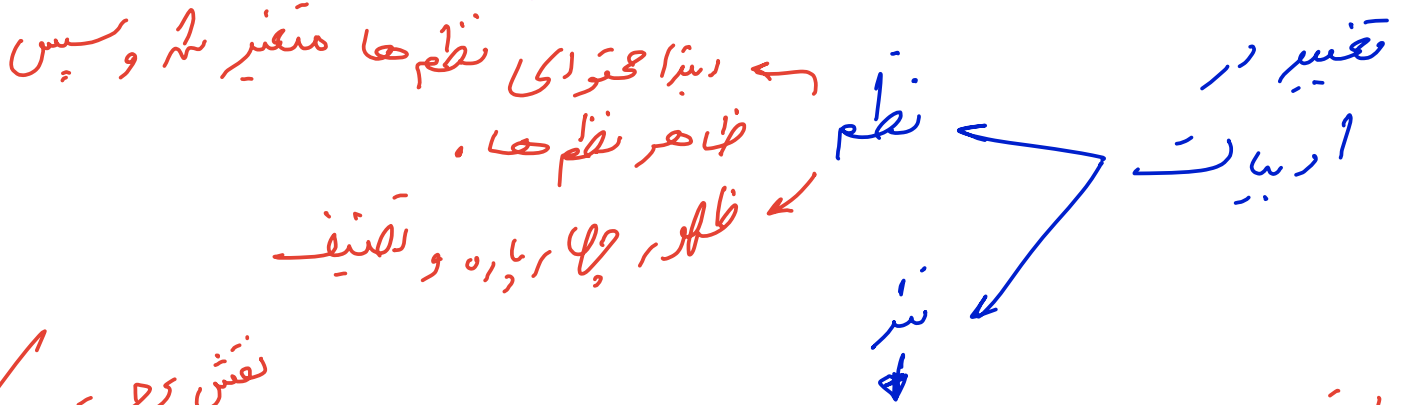 تغییر در
ادبیات
نظم
ابتدا محتوای نظم‌ها متغیر شد و سپس
ظاهر نظم‌ها.
ظهور چهارپاره و تصنیف
نثر
نقش